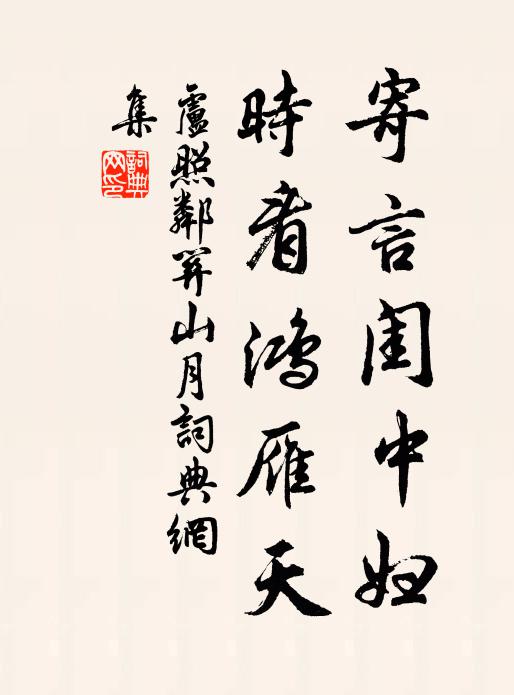 寄言閨中婦
時看鴻雁天
盧照鄰關山月詞典網
集
詞典
網印